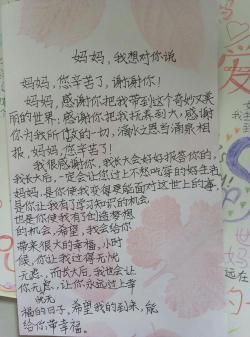 妈妈，我想对你说
妈妈，您辛苦了，谢谢你！
妈妈，感谢你把我带到这个奇妙又美
丽的世界，感谢你把我抚养到大，感谢
你为我所做的一切，滴水之恩当涌泉相
报，妈妈，您辛苦了！
我很感谢你，我长大会好好报答你的，
我长大后，一定会让您过上不愁吃穿的好生活
妈妈，是你使我变得更能面对这世上的事，
是你让我有了学习知识的机会，
也是你使我有了创造梦想
的机会，希望，我会给你
带来很大的幸福，小时
候，你让我过得无忧
无虑，而长大后，我也会让
你无虑，让你永远过上幸
无忧
福的日子，希望我的到来，能
给你带幸福。
爱
远在